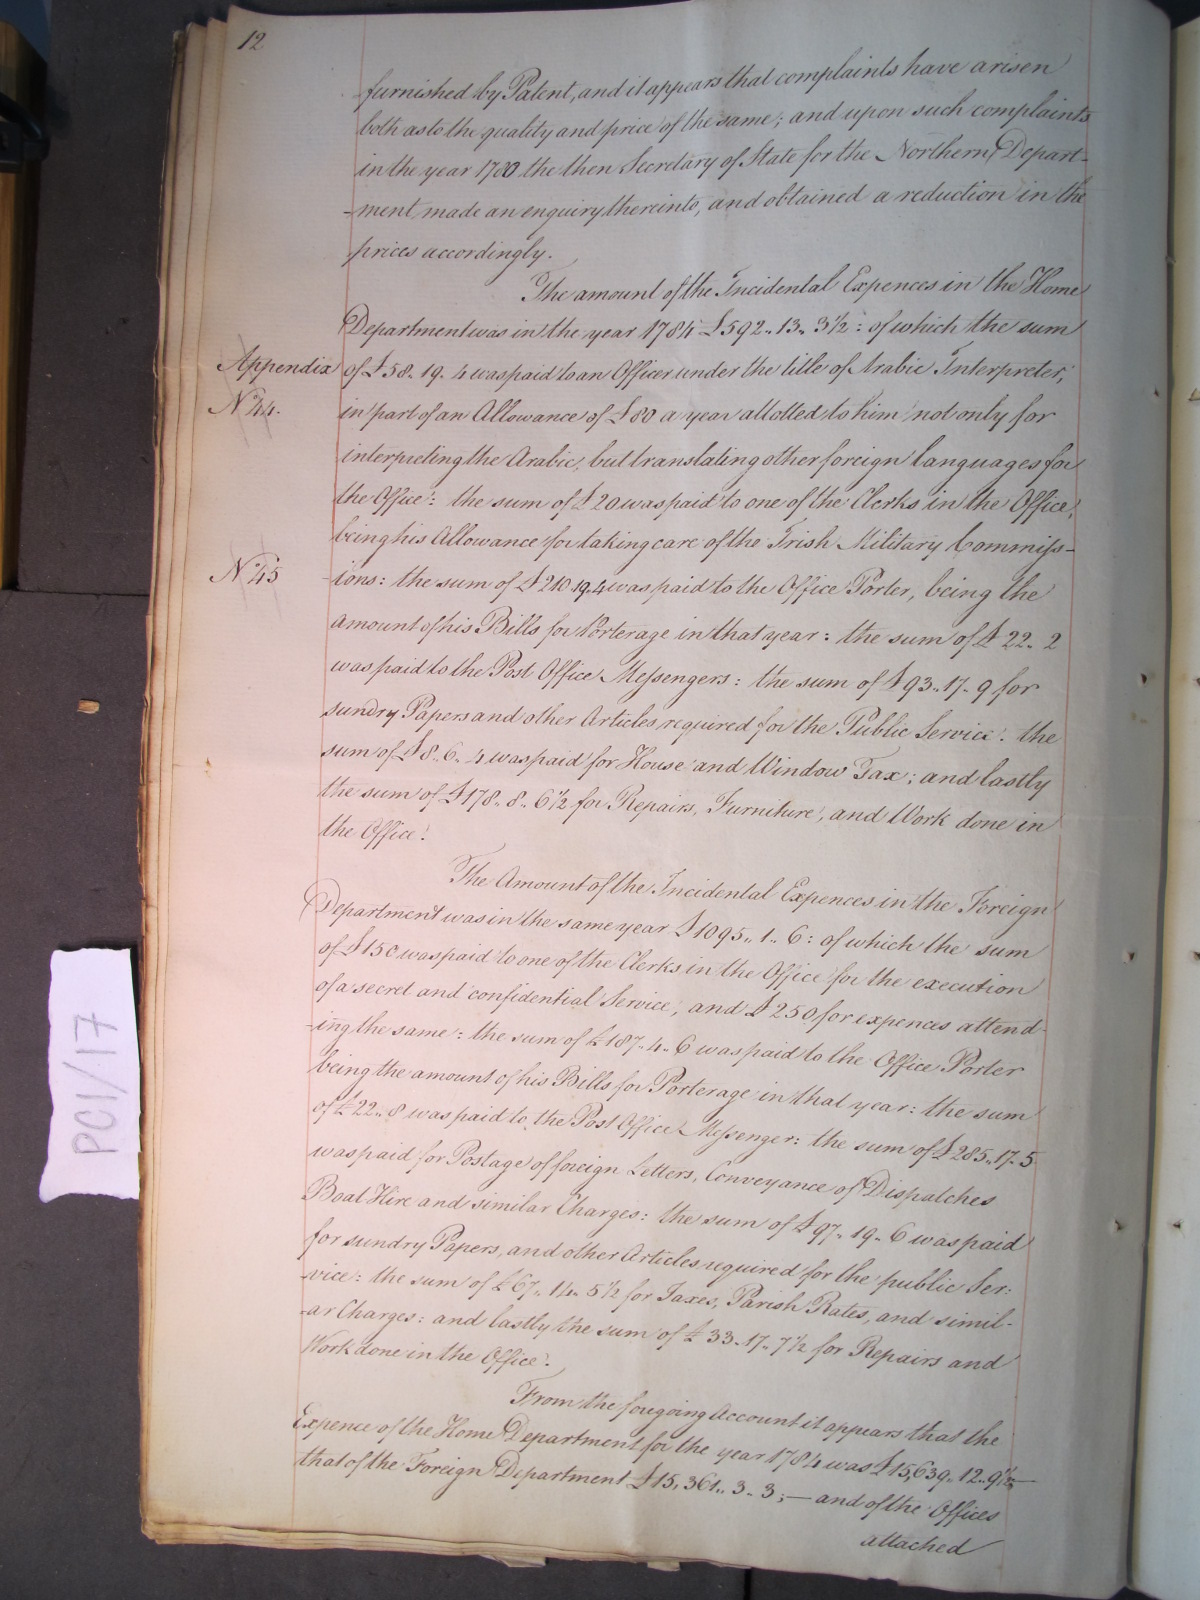 12
furnished by Patent, and it appears that complaints have arisen
both as to the quality and price of the same; and upon such complaints
in the year 1780 the then Secretary of State for the Northern Depart-
-ment, made an enquiry thereinto, and obtained a reduction in the
prices accordingly.
The amount of the Incidental Expences in the Home
Department was in the year 1784 £592.. 13.. 3½: of which the sum
Appendix
of £58.. 19.. 4 was paid to an Officer under the title of Arabic Interpreter,
No. 44.
in part of an Allowance of £80 a year allotted to him not only for
interpreting the Arabic, but translating other foreign languages for
the Office: the sum of £20 was paid to one of the Clerks in the Office,
being his Allowance for taking care of the Irish Military Commiss-
No. 45
-ions: the sum of £210.19.4 was paid to the Office Porter, being the
amount of his Bills for Porterage in that year: the sum of £22.. 2
was paid to the Post Office Messengers: the sum of £93.. 17.. 9 for
sundry Papers and other Articles required for the Public Service: the
sum of £8.. 6.. 4 was paid for House and Window Tax; and lastly
the sum of £178.. 8.. 6½ for Repairs, Furniture, and Work done in
the Office.
The Amount of the Incidental Expences in the Foreign
Department was in the same year £1095.. 1.. 6: of which the sum
of £150 was paid to one of the Clerks in the Office for the execution
of a secret and confidential Service, and £250 for expences attend-
-ing the same: the sum of £187.. 4.. 6 was paid to the Office Porter
being the amount of his Bills for Porterage in that year: the sum
of £22.. 8 was paid to the Post Office Messenger: the sum of £285.. 17.. 5
was paid for Postage of foreign Letters, Conveyance of Dispatches
Boat Hire and similar Charges: the sum of £97.. 19.. 6 was paid
for sundry Papers, and other Articles required for the public Ser:
-vice: the sum of £67.. 14.. 5½ for Taxes, Parish Rates, and simil-
-ar Charges: and lastly the sum of £33.. 17.. 7½ for Repairs and
Work done in the Office.
From the foregoing Account it appears that the
Expence of the Home Department for the year 1784 was £15,639.. 12.. 9½;—
that of the Foreign Department £15,361.. 3.. 3;— and of the Offices
attached
PC1/17